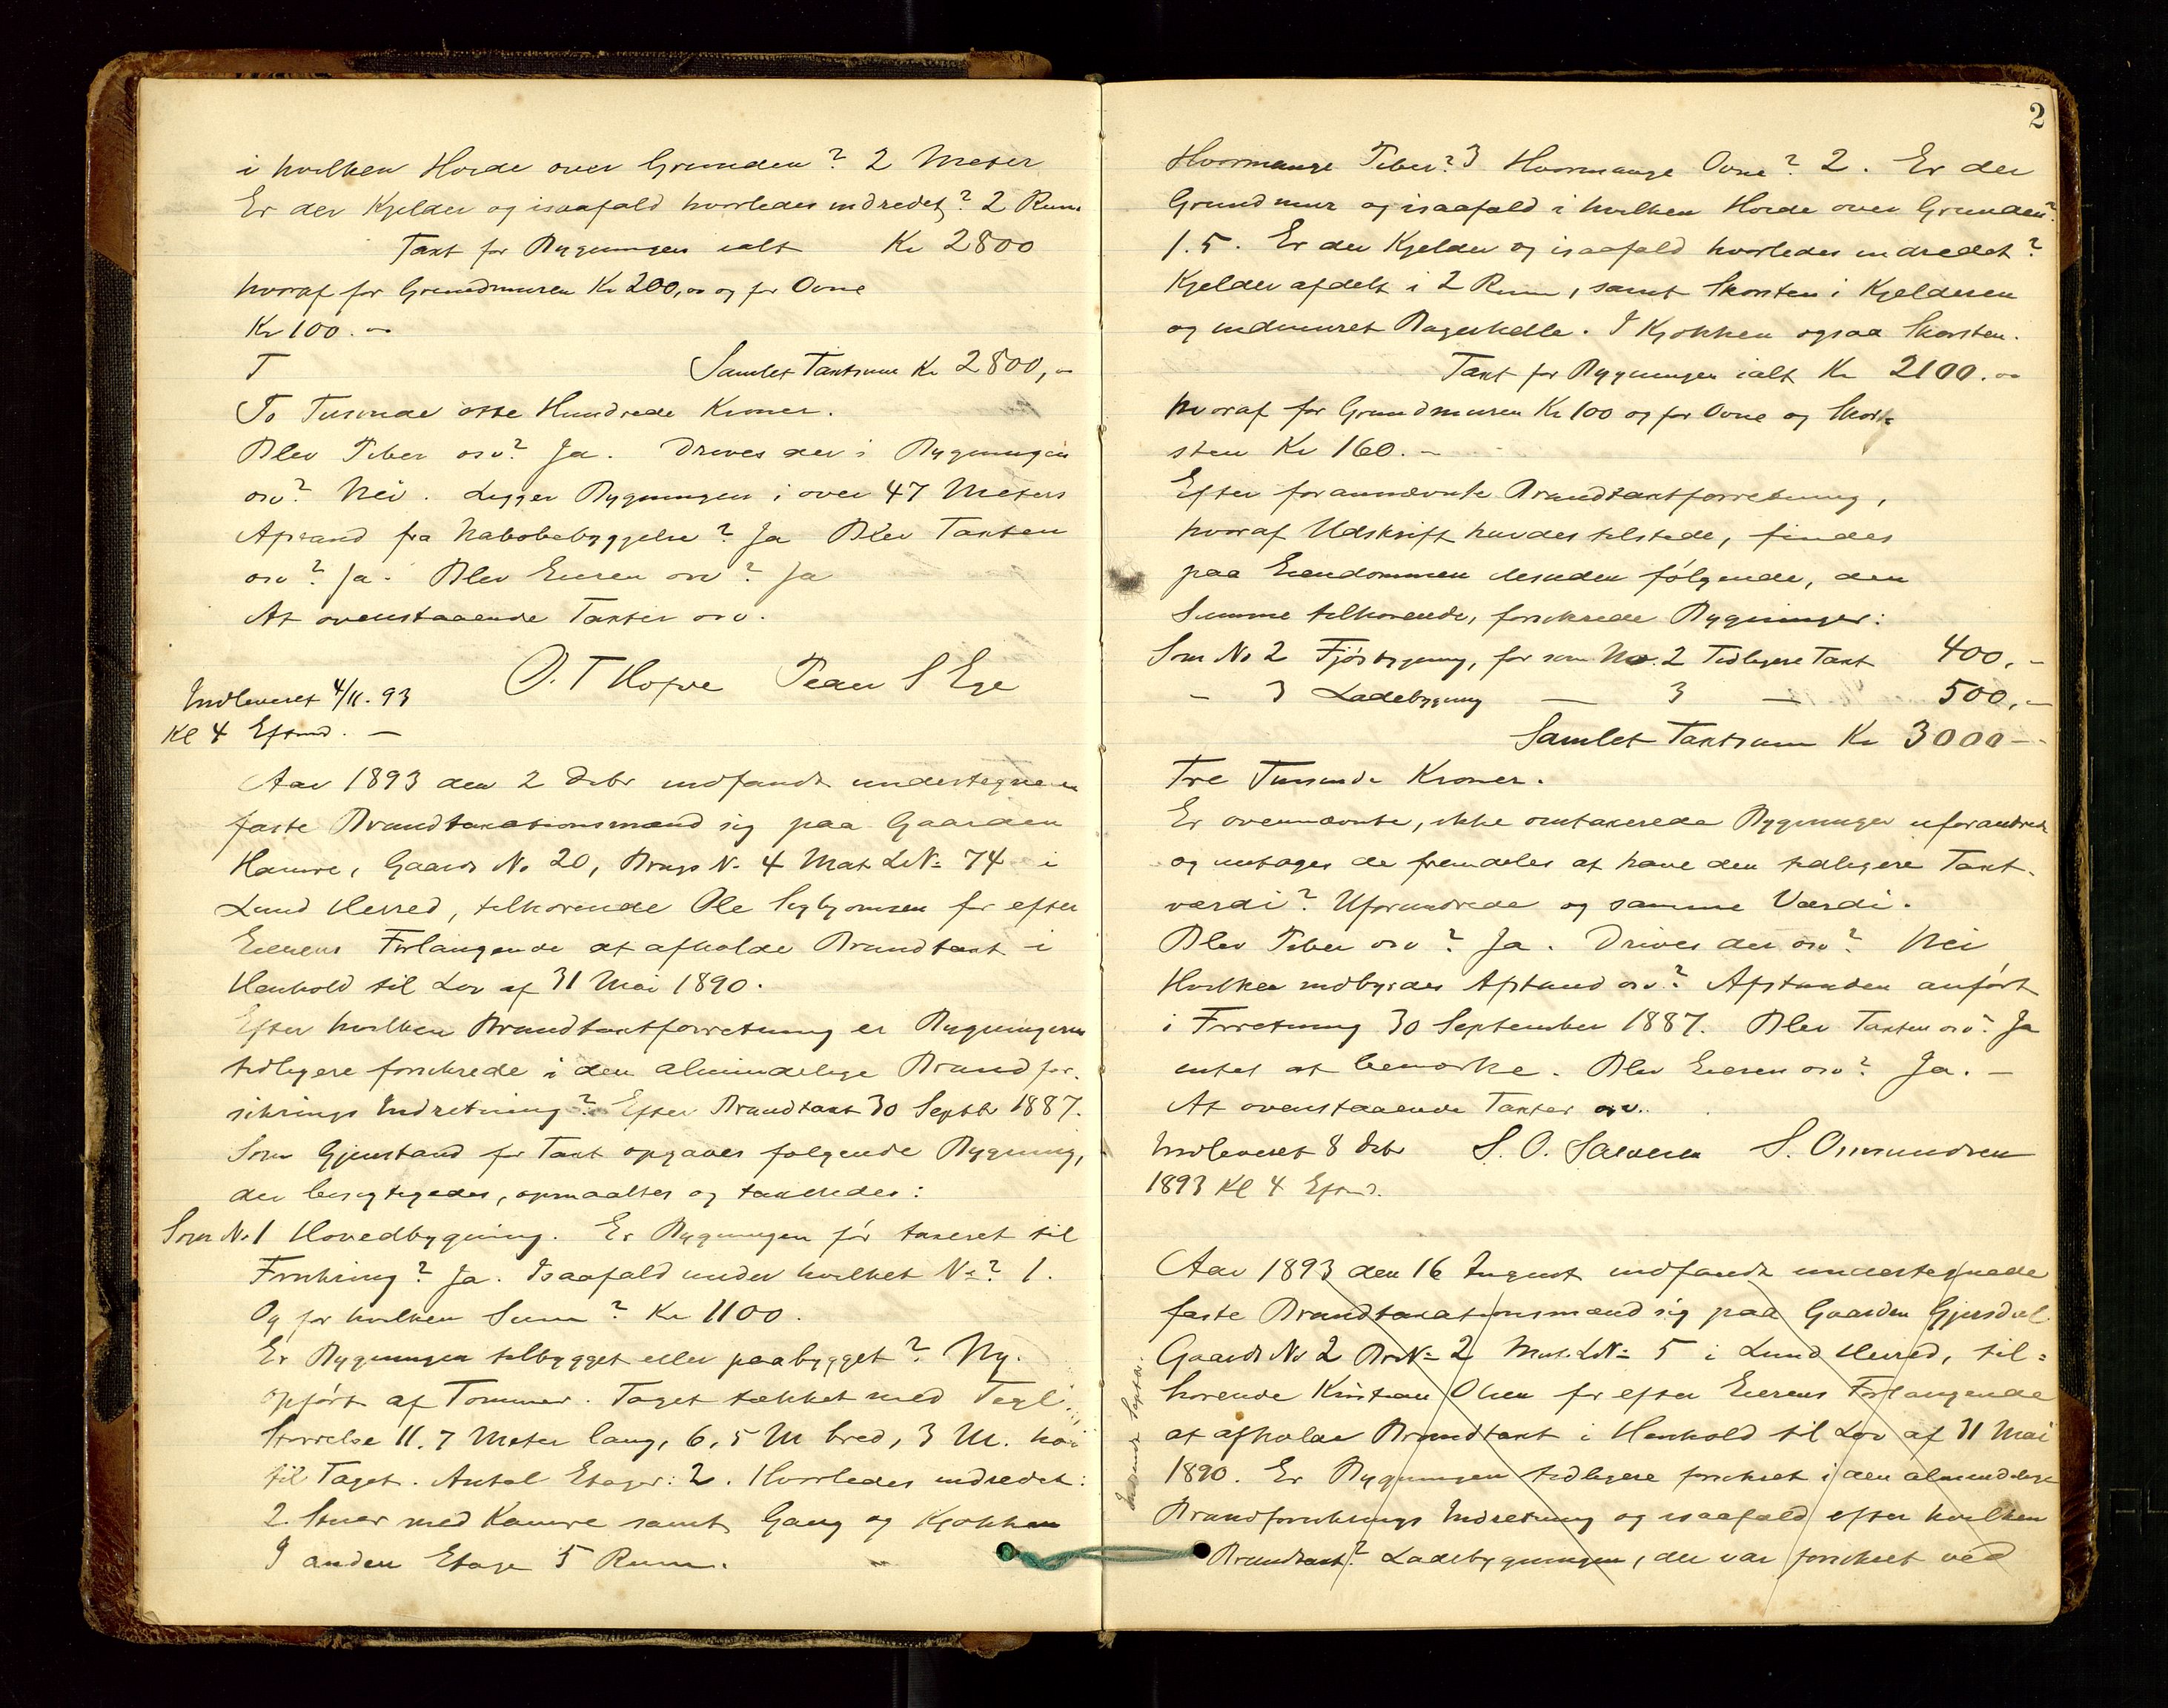 i hvilken Høide over Grunden? 2 Meter
Er der Kjelder og isaafald hvorledes indredet? 2 Rum
Taxt for Bygningen ialt Kr 2800
hvoraf for Grundmuren Kr 200,00 og for Ovne
Kr 100.–
T Samlet Taxtsum Kr 2800,–
To Tusinde otte Hundrede Kroner.
Blev Piber osv? Ja. Drives der i Bygningen
osv? Nei. Ligger Bygningen i over 47 Meters
Afstand fra Nabobebyggelse? Ja Blev Taxten
osv? Ja. Blev Eieren osv? Ja
At ovenstaaende Taxter osv.
O. T Hofve Peder S Ege
Indleveret 4/11.93
Kl 4 Eftmd. –
Aar 1893 den 2 Debr indfandt undertegnede
faste Brandtaxationsmænd sig paa Gaarden
Hamre, Gaards No 20, Brugs N. 4 Mat. LN: 74 i
Lund Herred, tilhørende Ole Sigbjørnsen for efter
Eierens Forlangende at afholde Brandtaxt i
Henhold til Lov af 31 Mai 1890.
Efter hvilken Brandtaxtforretning er Bygningerne
tidligere forsikrede i den almindelige Brandfor-
sikrings Indretning? Efter Brandtaxt 30 Septbr 1887.
Som Gjenstand for Taxt opgaves følgende Bygning,
der besigtigedes, opmaaltes og taxeredes:
Som No 1 Hovedbygning. Er Bygningen før taxeret til
Forsikring? Ja. Isaafald under hvilket N:? 1.
Og for hvilken Sum? Kr 1100.
Er Bygningen tilbygget eller paabygget? Ny.
opført af Tømmer. Taget tækket med Tegl.
Størrelse 11.7 Meter lang, 6,5 M bred, 3 M. høi
til Taget. Antal Etager: 2. Hvorledes indredet:
2 Stuer med Kamre samt Gang og Kjøkken
I anden Etage 5 Rum.
2
Hvormange Piber? 3 Hvormange Ovne? 2. Er der
Grundmur og isaafald i hvilken Høide over Grunden?
1.5. Er der Kjelder og isaafald hvorledes indredet?
Kjelder afdelt i 2 Rum, samt Skorsten i Kjelderen
og indmuret Bagerhelle. I Kjøkken ogsaa Skorsten.
Taxt for Bygningen ialt Kr 2100.00
hvoraf for Grundmuren Kr 100 og for Ovne og Skor-
sten Kr 160.–
Efter forannævnte Brandtaxtforretning,
hvoraf Udskrift havdes tilstede, findes
paa Eiendommen desuden følgende, den
Samme tilhørende, forsikrede Bygninger:
Som No 2 Fjøsbygning, før som No. 2 Tidligere Taxt 400,–
– 3 Ladebygning – 3 – 500,–
Samlet Taxtsum Kr 3000–
Tre Tusinde Kroner.
Er ovennævnte, ikke omtaxerede Bygninger uforandrede
og antages de fremdeles at have den tidligere Taxt-
værdi? Uforandrede og samme Værdi.
Blev Piber osv? Ja. Drives der osv? Nei
Hvilken indbyrdes Afstand osv? Afstanden anført
i Forretning 30 September 1887. Blev Taxten osv? Ja
intet at bemærke. Blev Eieren osv? Ja. –
At ovenstaaende Taxter osv.
Indleveret 8 Debr S. O. Salvesen S. Osmundsen
1893 Kl 4 Eftmd.
Aar 1893 den 16 August indfandt undertegnede
faste Brandtaxationsmænd sig paa Gaarden Gjersdal
Gaards No 2 BrN: 2 Mat. LN: 5 i Lund Herred, til-
hørende Kristian Olsen for efter Eierens Forlangende
at afholde Brandtaxt i Henhold til Lov af 31 Mai
1890. Er Bygningen tidligere forsikret i den almindelige
Brandforsikrings Indretning og isaafald efter hvilken
Brandtaxt? Ladebygningen, der var forsikret ved